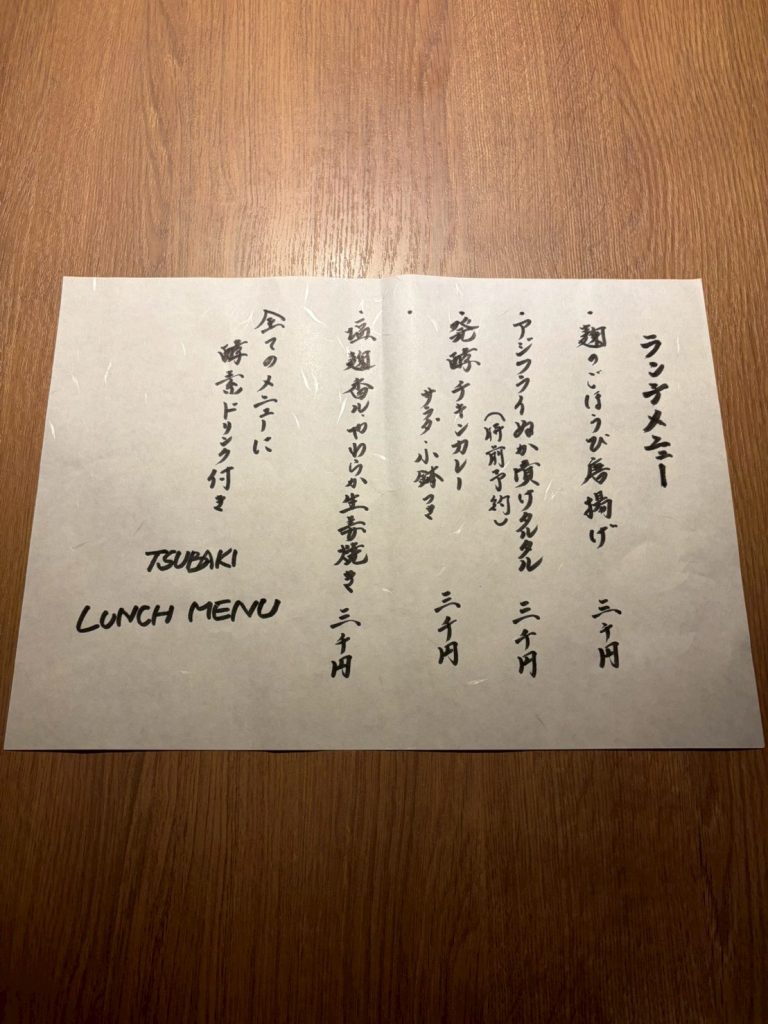 ランチメニュー
・麹のごほうび唐揚げ 三千円
・アジフライぬか漬けタルタル 三千円
(事前予約)
・発酵チキンカレー 三千円
サラダ・小鉢つき
・
・塩麹香ル・やわらか生姜焼き 三千円
全てのメニューに
酵素ドリンク付き
TSUBAKI
LUNCH MENU